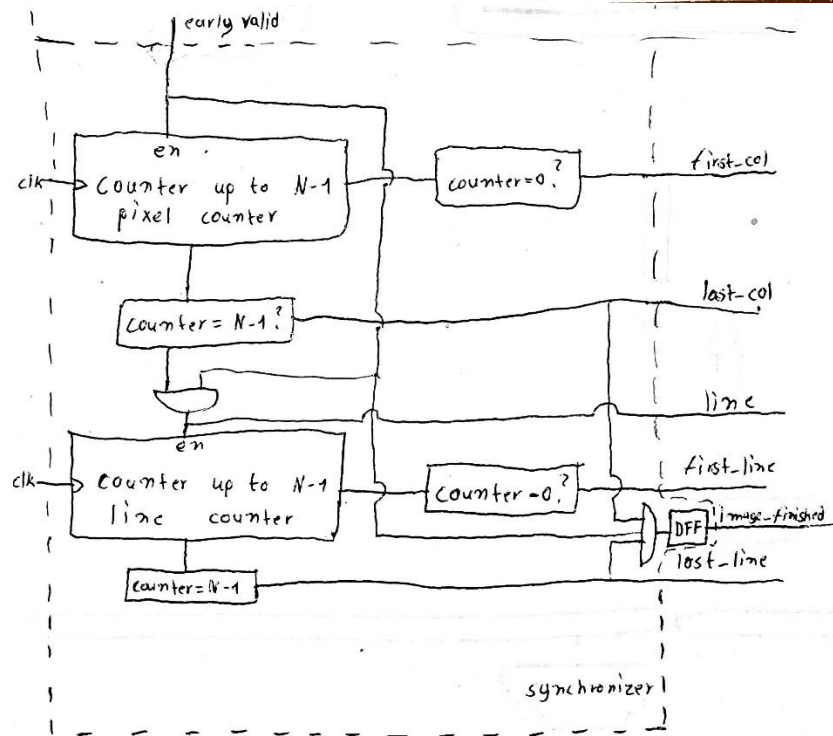 early valid
en
clk
Counter up to N-1
pixel counter
counter=0?
first_col
counter=N-1?
last_col
line
en
clk
counter up to N-1
line counter
counter=0?
first_line
DFF
image_finished
counter=N-1
last_line
synchronizer